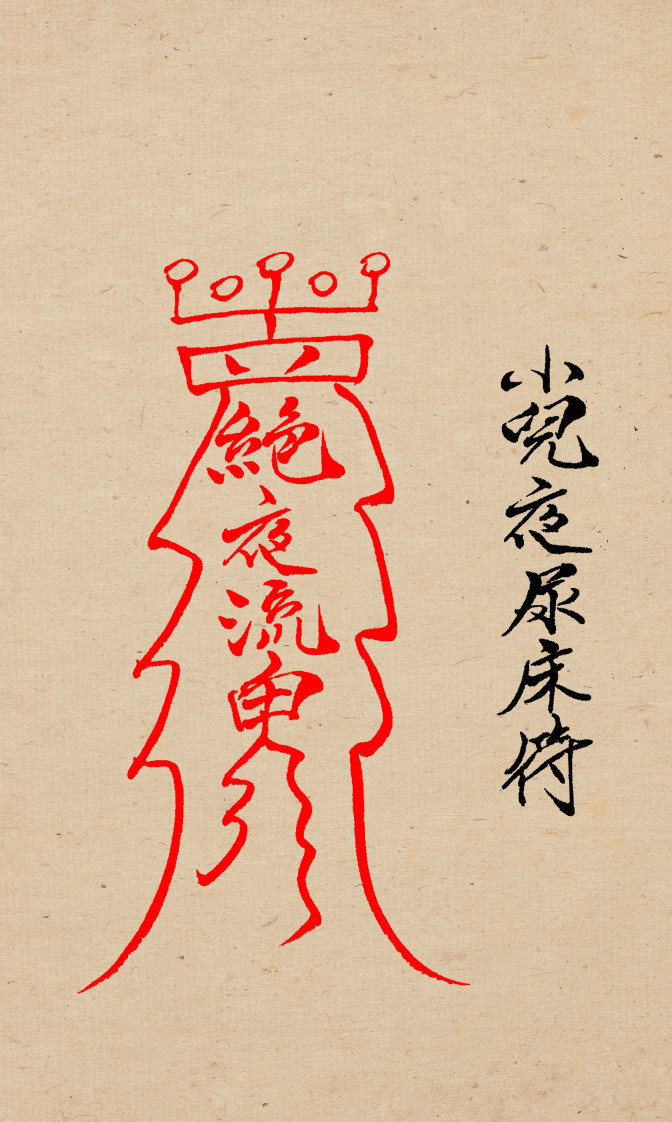 小兒夜尿床符
絕夜流